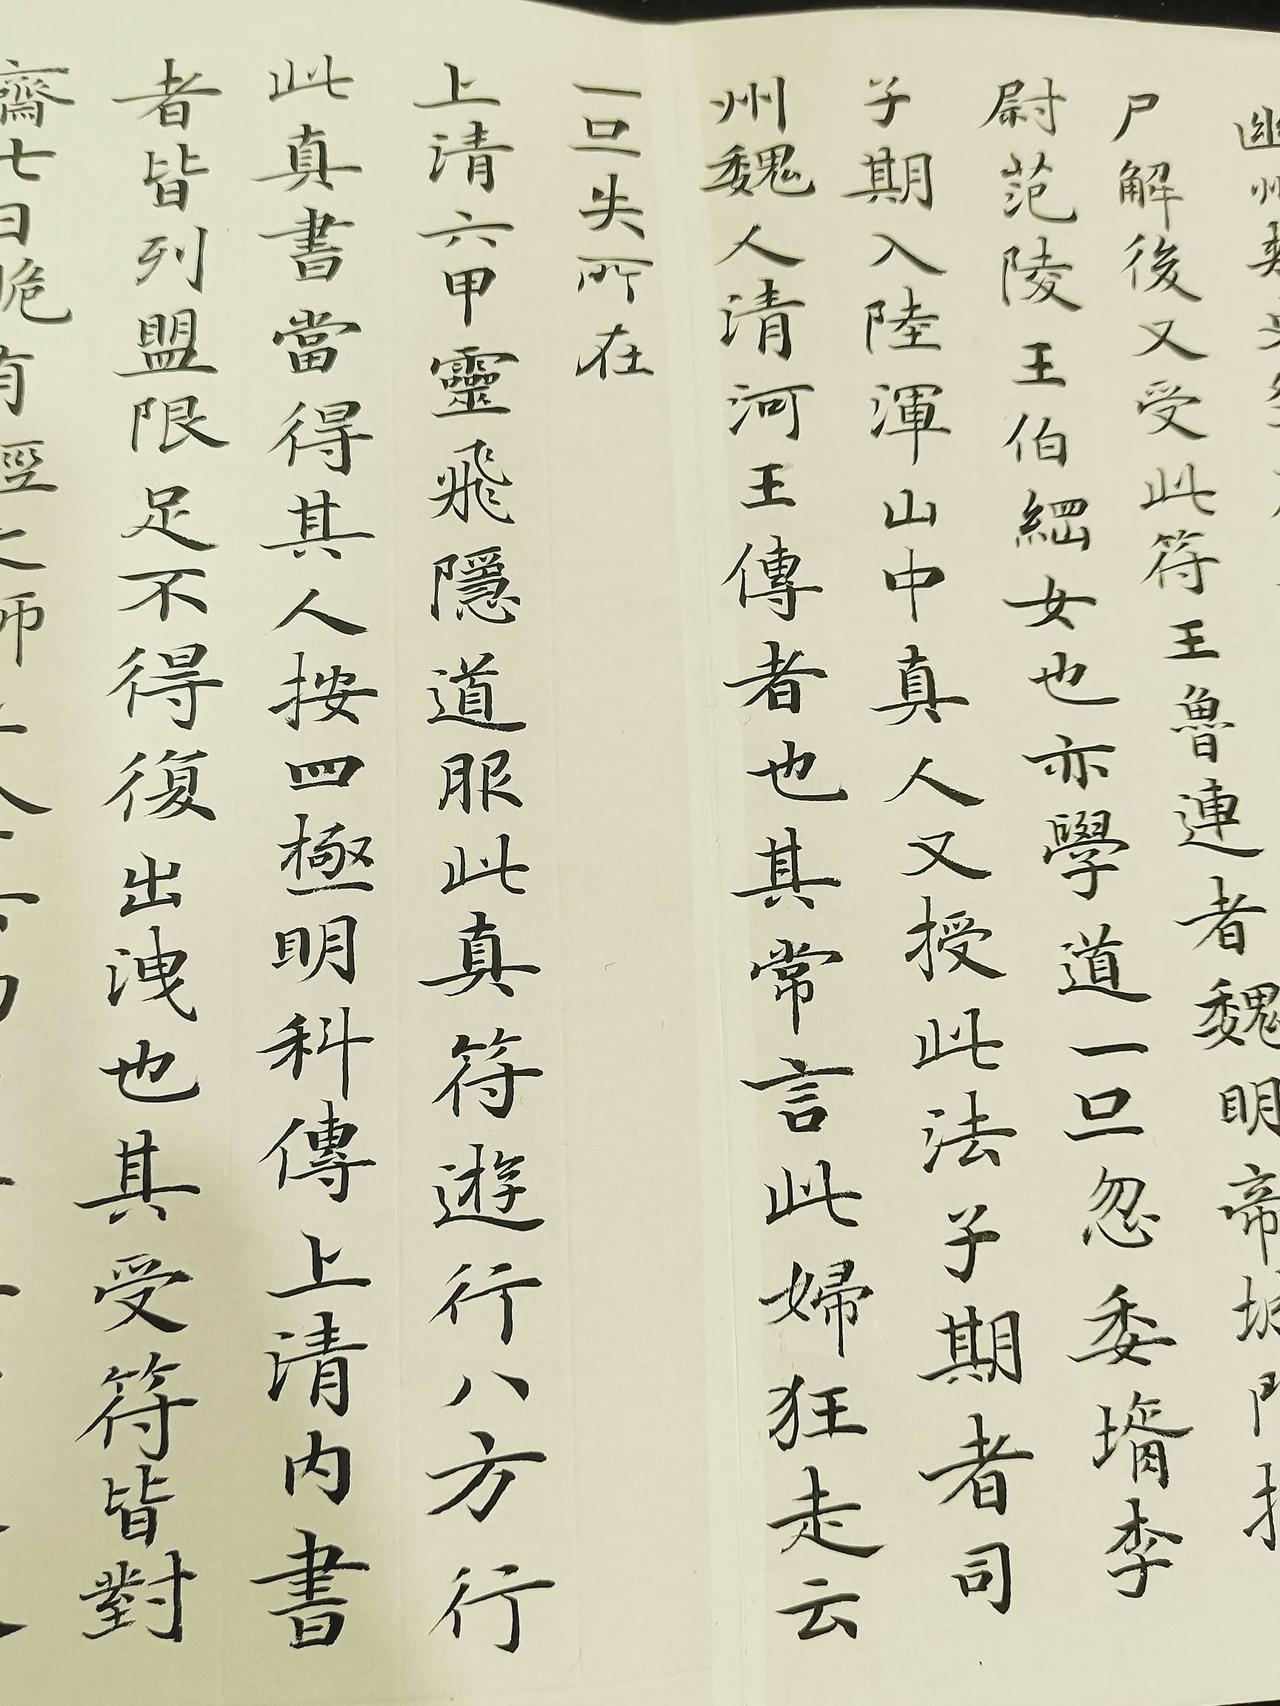 幽州
尸解後又受此符王魯連者魏明帝城門
尉范陵王伯綱女也亦學道一旦忽委壻李
子期入陸渾山中真人又授此法子期者司
州魏人清河王傳者也其常言此婦狂走云
一旦失所在
上清六甲靈飛隱道服此真符遊行八方行
此真書當得其人按四極明科傳上清內書
者皆列盟限足不得復出洩也其受符皆對
齋七日跪有經之師